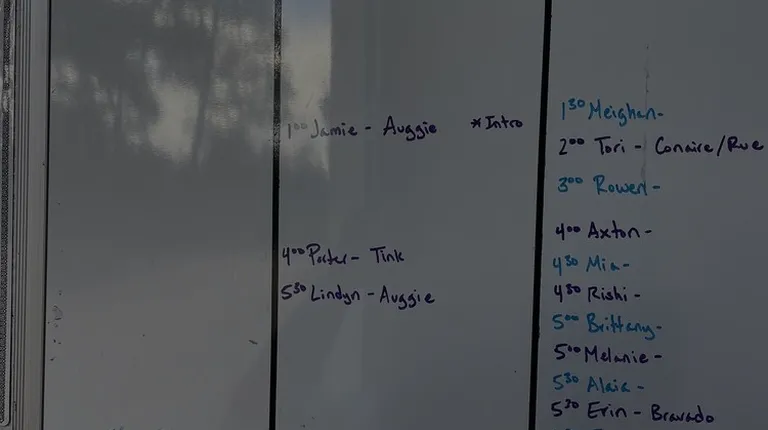 1:00 Jamie - Auggie *Intro
4:00 Porter - Tink
5:30 Lindyn - Auggie
1:30 Meighan-
2:00 Tori - Conaire/Rue
3:00 Rowen-
4:00 Axton-
4:30 Mia-
4:30 Rishi-
5:00 Brittany-
5:00 Melanie-
5:30 Alaia-
5:30 Erin - Bravado